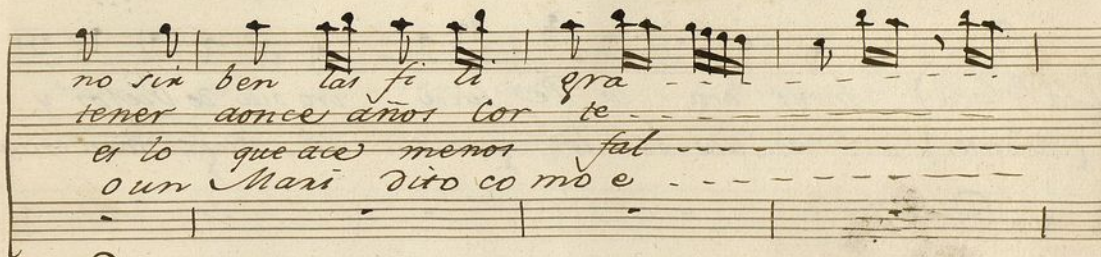 no sir ben las fi li gra
tener aonce años Cor te
es lo que ace menos fal
o un Mari dito co mo e